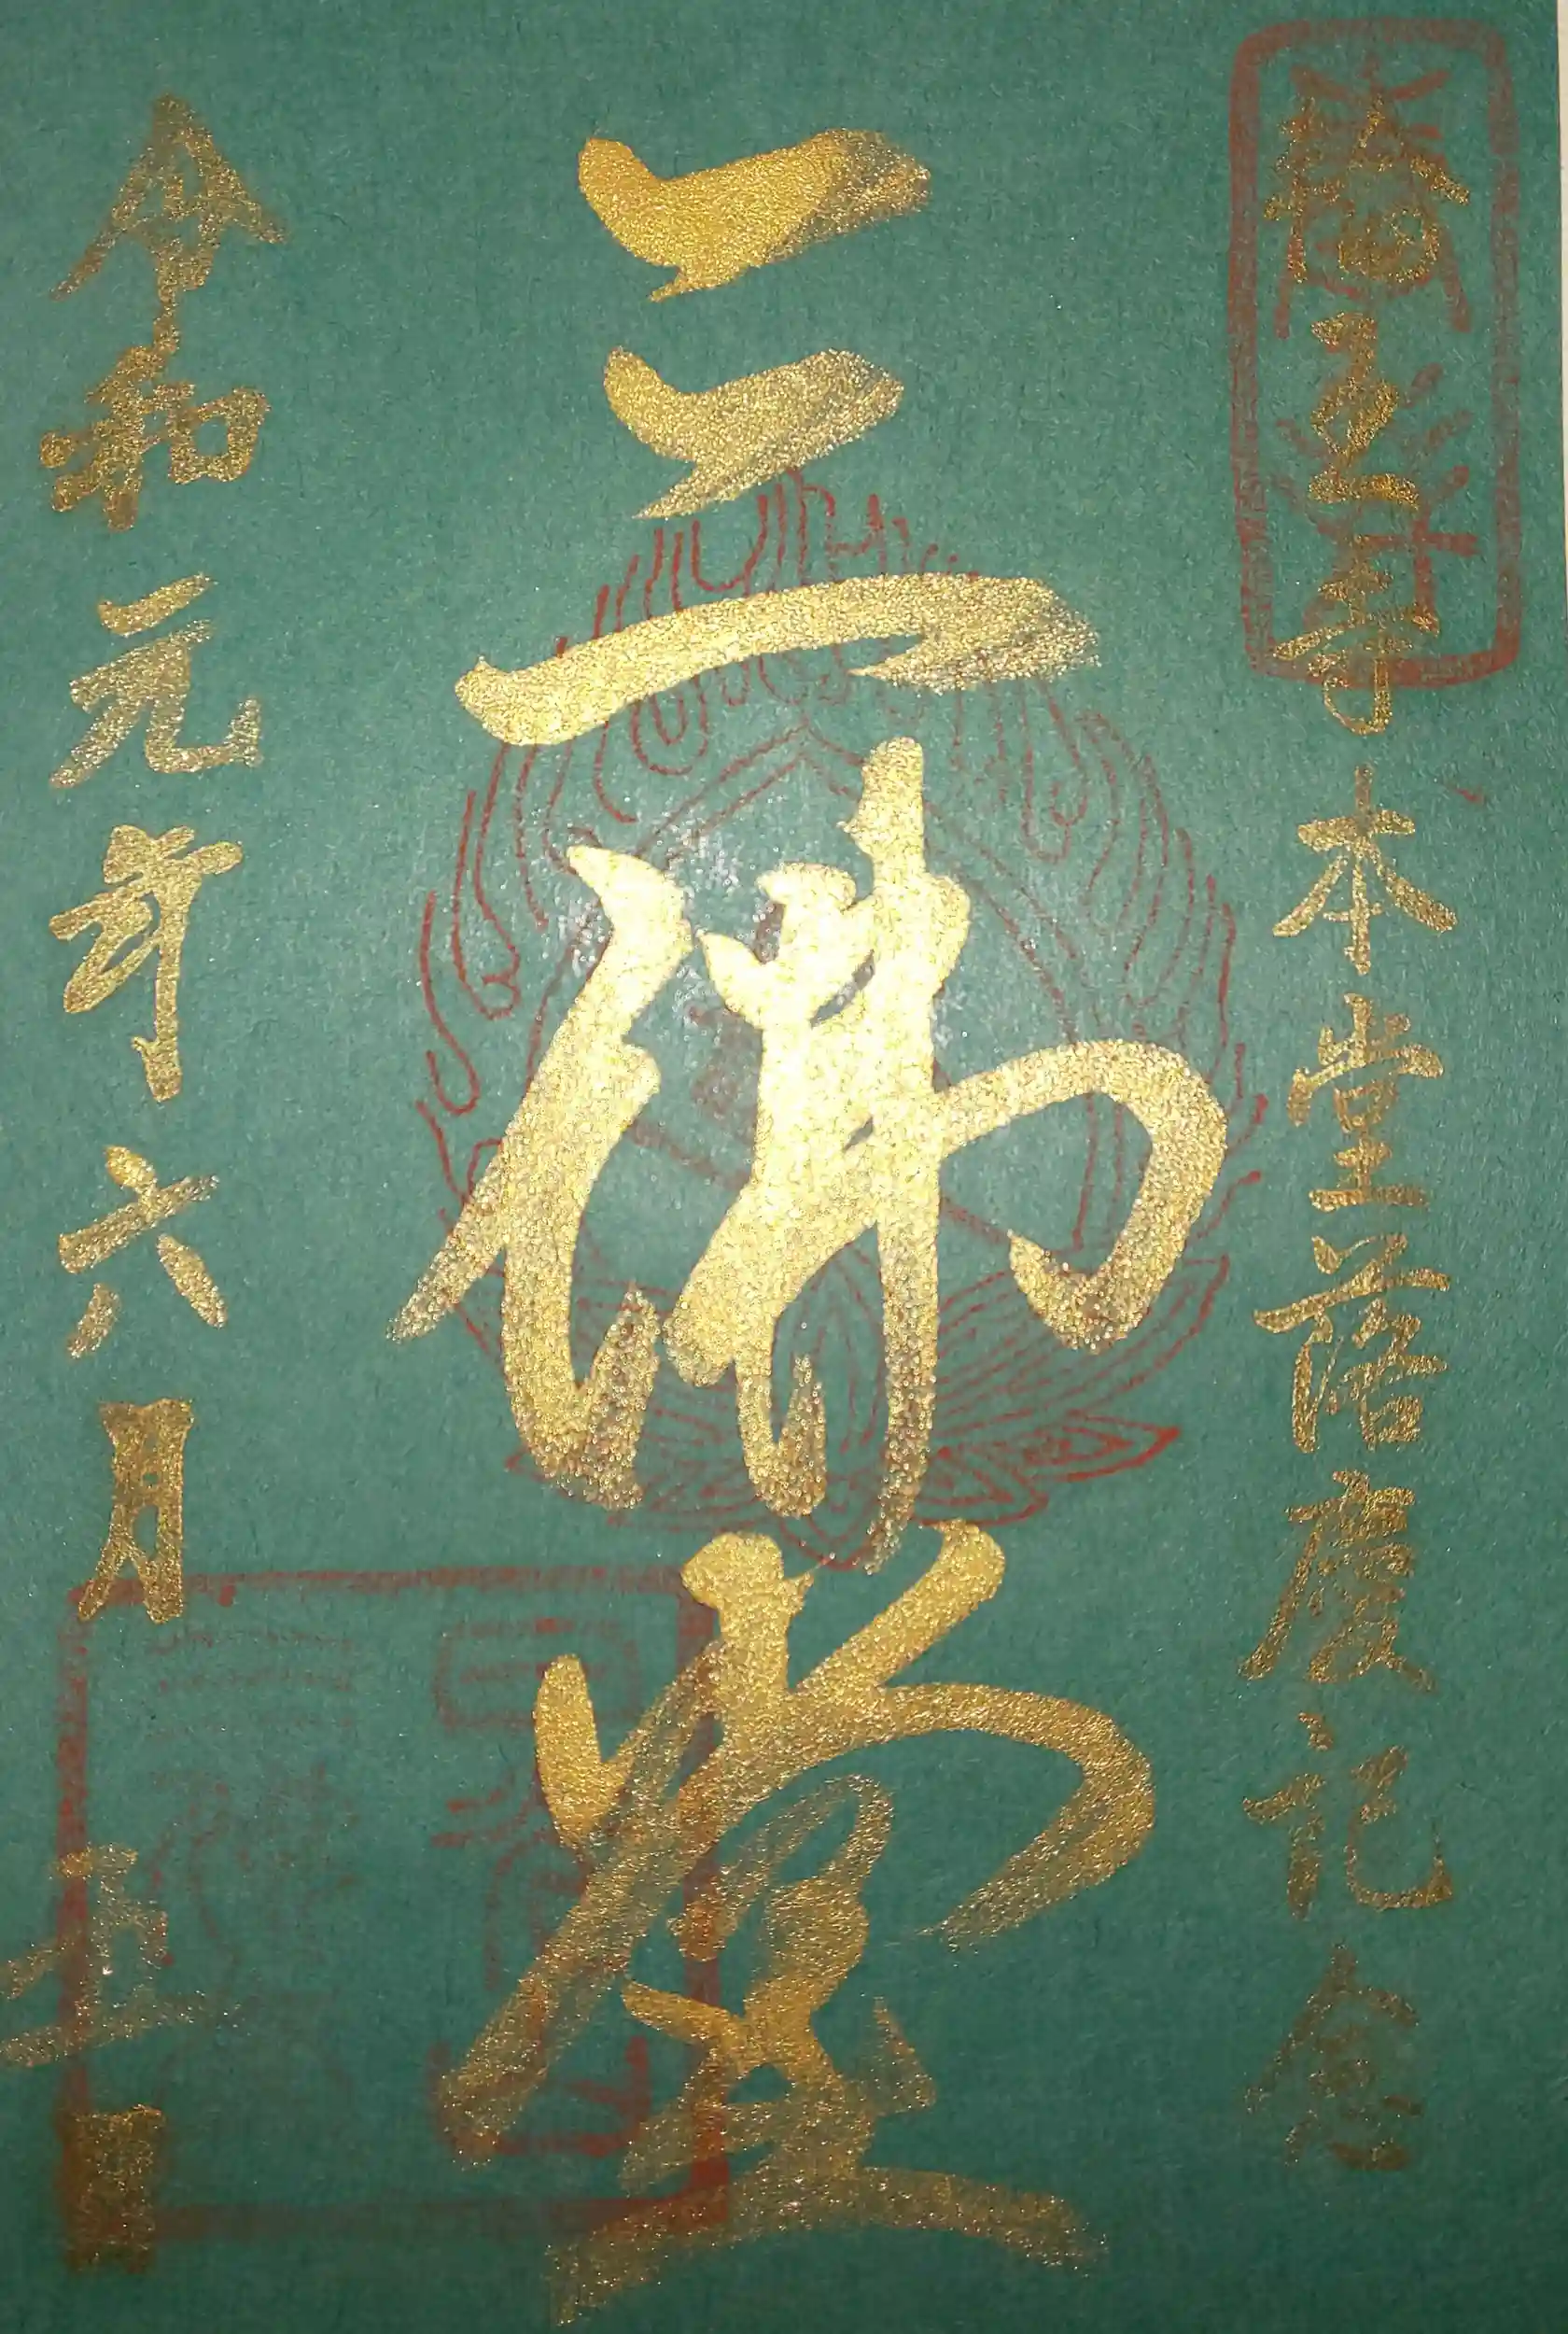 輪王寺本堂落慶記念
三佛堂
令和元年六月五日